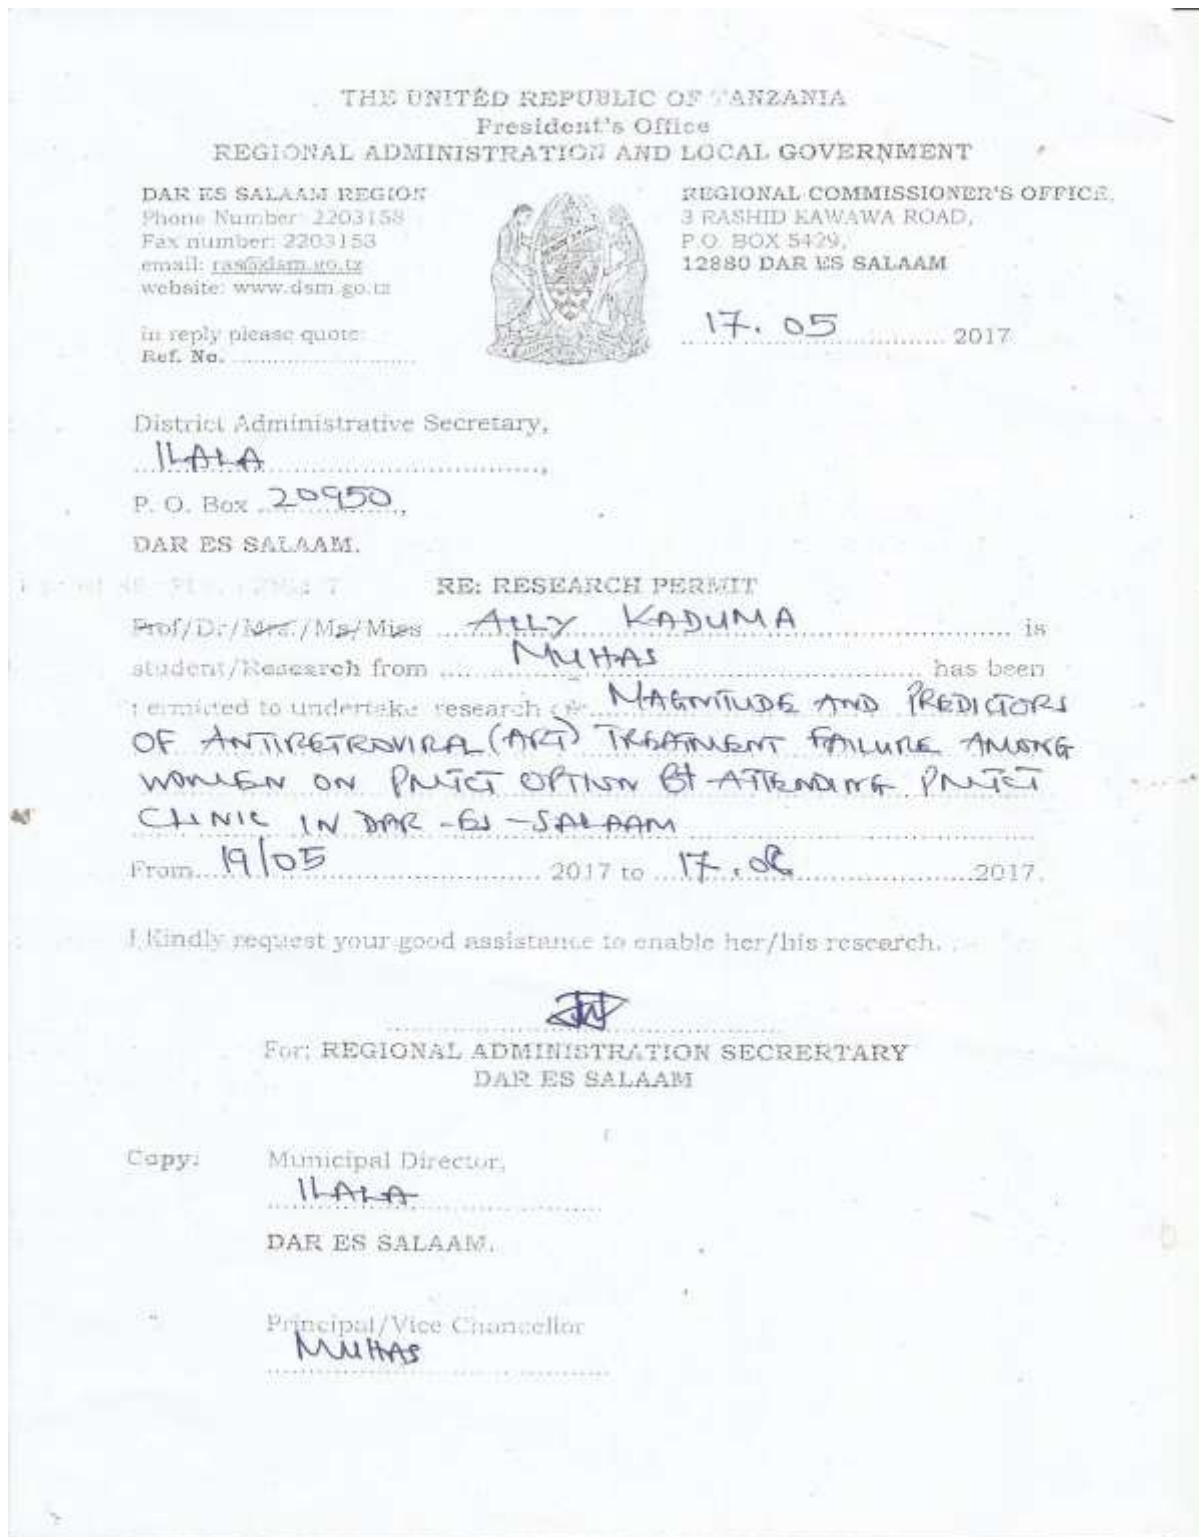 THE UNITED REPUBLIC OF TANZANIA
President's Office
REGIONAL ADMINISTRATION AND LOCAL GOVERNMENT
DAR ES SALAAM REGION
Phone Number: 2203158
Fax number: 2203158
email: ras@dsm.go.tz
website: www.dsm.go.tz
in reply please quote:
Ref. No. ..............................
REGIONAL COMMISSIONER'S OFFICE,
3 RASHID KAWAWA ROAD,
P.O. BOX 5429,
12880 DAR ES SALAAM
17. 05 2017
District Administrative Secretary,
ILALA
P. O. Box 20950,
DAR ES SALAAM.
RE: RESEARCH PERMIT
Prof/Dr/Mrs./Ms/Miss ALLY KADUMA is
student/Research from MUHAS has been
permitted to undertake research on MAGNITUDE AND PREDICTORS
OF ANTIRETROVIRAL (ART) TREATMENT FAILURE AMONG
WOMEN ON PMTCT OPTION B+ ATTENDING PMTCT
CLINIC IN DAR-ES-SALAAM
From 19/05 2017 to 17. 08 2017.
I Kindly request your good assistance to enable her/his research.
For: REGIONAL ADMINISTRATION SECRERTARY
DAR ES SALAAM
Copy: Municipal Director,
ILALA
DAR ES SALAAM.
" Principal/Vice Chancellor
MUHAS